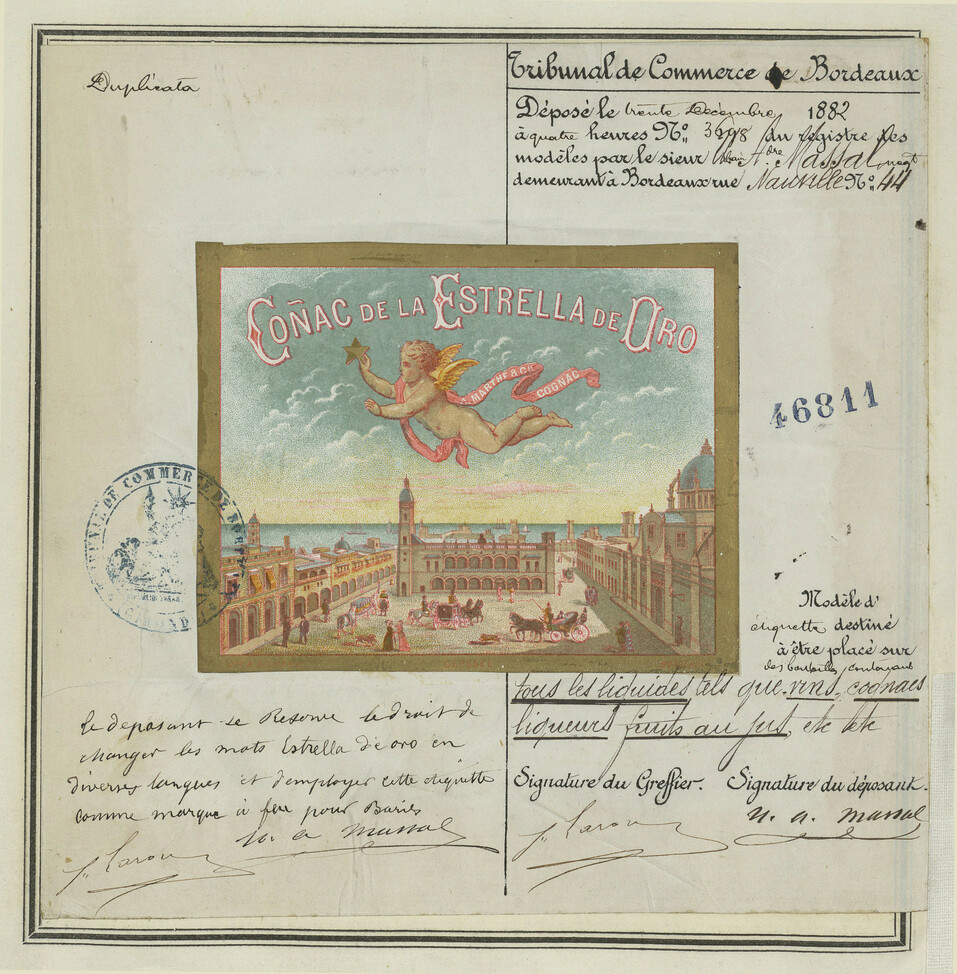 Duplicata
Tribunal de Commerce de Bordeaux
Déposé le trente Décembre 1882
à quatre heures No. 3698 du registre des
modèles par le sieur A.dre Massal, negt
demeurant à Bordeaux rue Nauville No. 44
COÑAC DE LA ESTRELLA DE ORO
MARTHE & Co COGNAC
46811
TRIBUNAL DE COMMERCE DE BORDEAUX
GIRONDE
Modèle d'
étiquette destiné
à être placé sur
des bouteilles contenant
tous les liquides tels que vins, cognacs
liqueurs fruits au jus, etc etc
Signature du Greffier. Signature du déposant.
u. a. massal
Le deposant se Reserve le droit de
changer les mots Estrella de oro en
diverses langues et d'employer cette etiquette
comme marque à feu pour Barils
u. a. massal